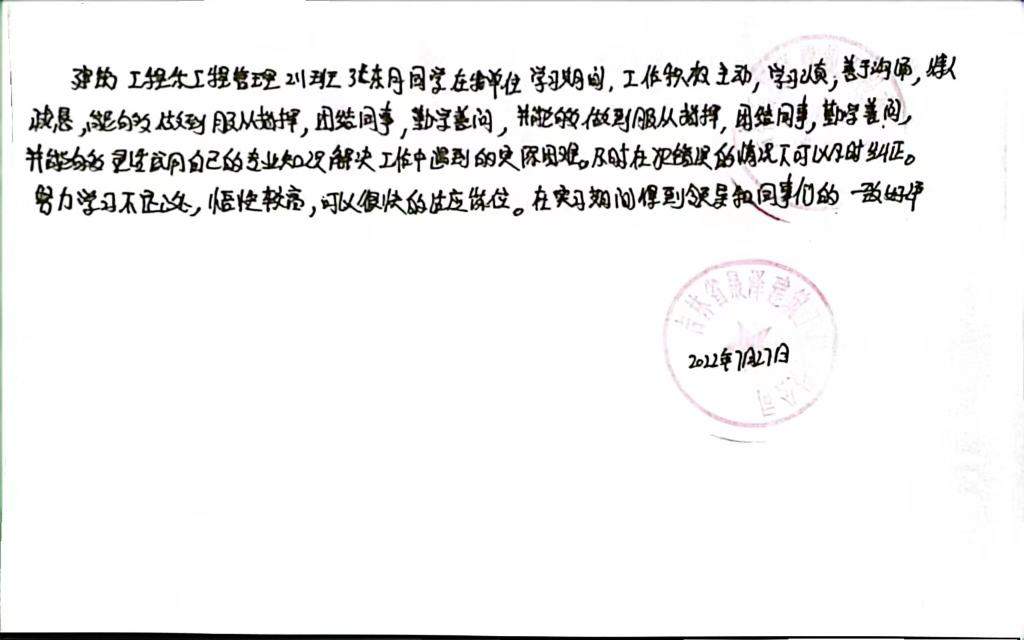 建筑工程系工程管理211班张东丹同学在我单位学习期间，工作积极主动，学习认真，善于沟通，待人
诚恳，能够做到服从指挥，团结同事，勤学善问，并能够做到服从指挥，团结同事，勤学善问，
并能够灵活运用自己的专业知识解决工作中遇到的实际困难。及时在犯错误的情况下可以及时纠正。
努力学习不足之处，悟性较高，可以很快的适应岗位。在实习期间得到领导和同事们的一致好评
吉林省晟泽建筑工
公司
2022年7月27日